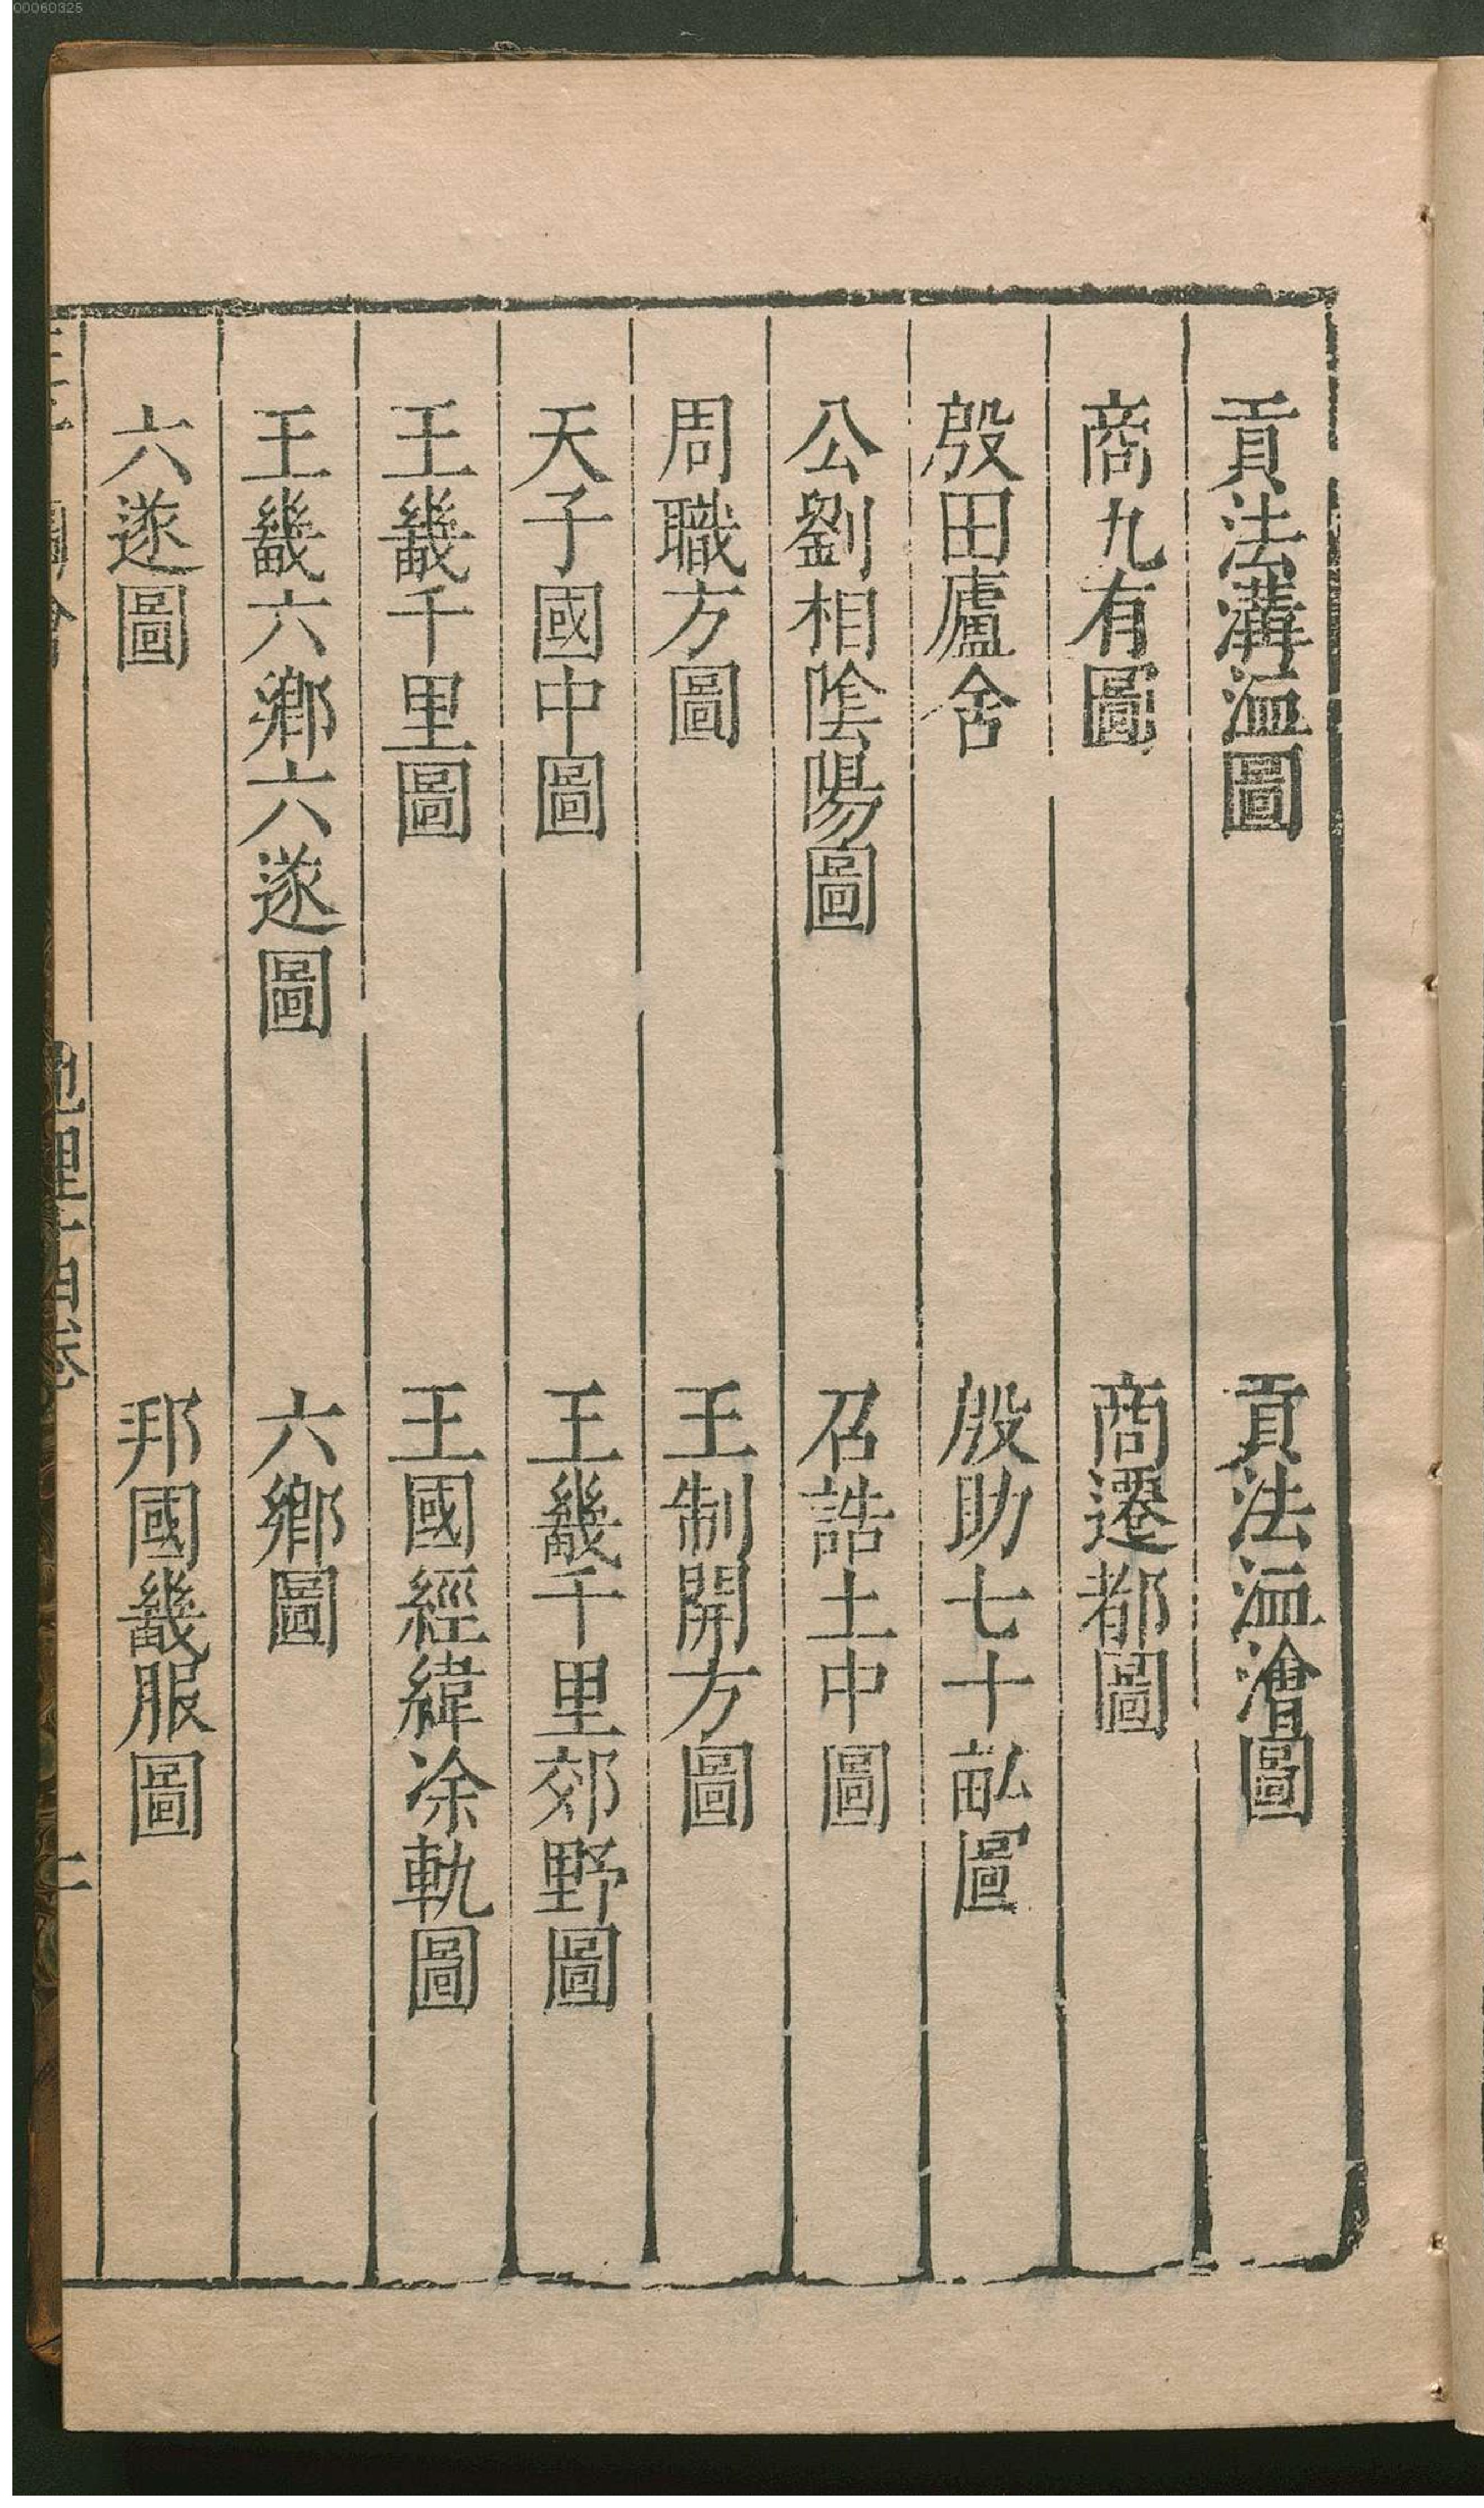 00060325
貢法溝洫圖　貢法洫澮圖
商九有圖　商遷都圖
殷田廬舍　殷助七十畝圖
公劉相陰陽圖　召誥土中圖
周職方圖　王制開方圖
天子國中圖　王畿千里郊野圖
王畿千里圖　王國經緯涂軌圖
王畿六鄉六遂圖　六鄉圖
六遂圖　邦國畿服圖